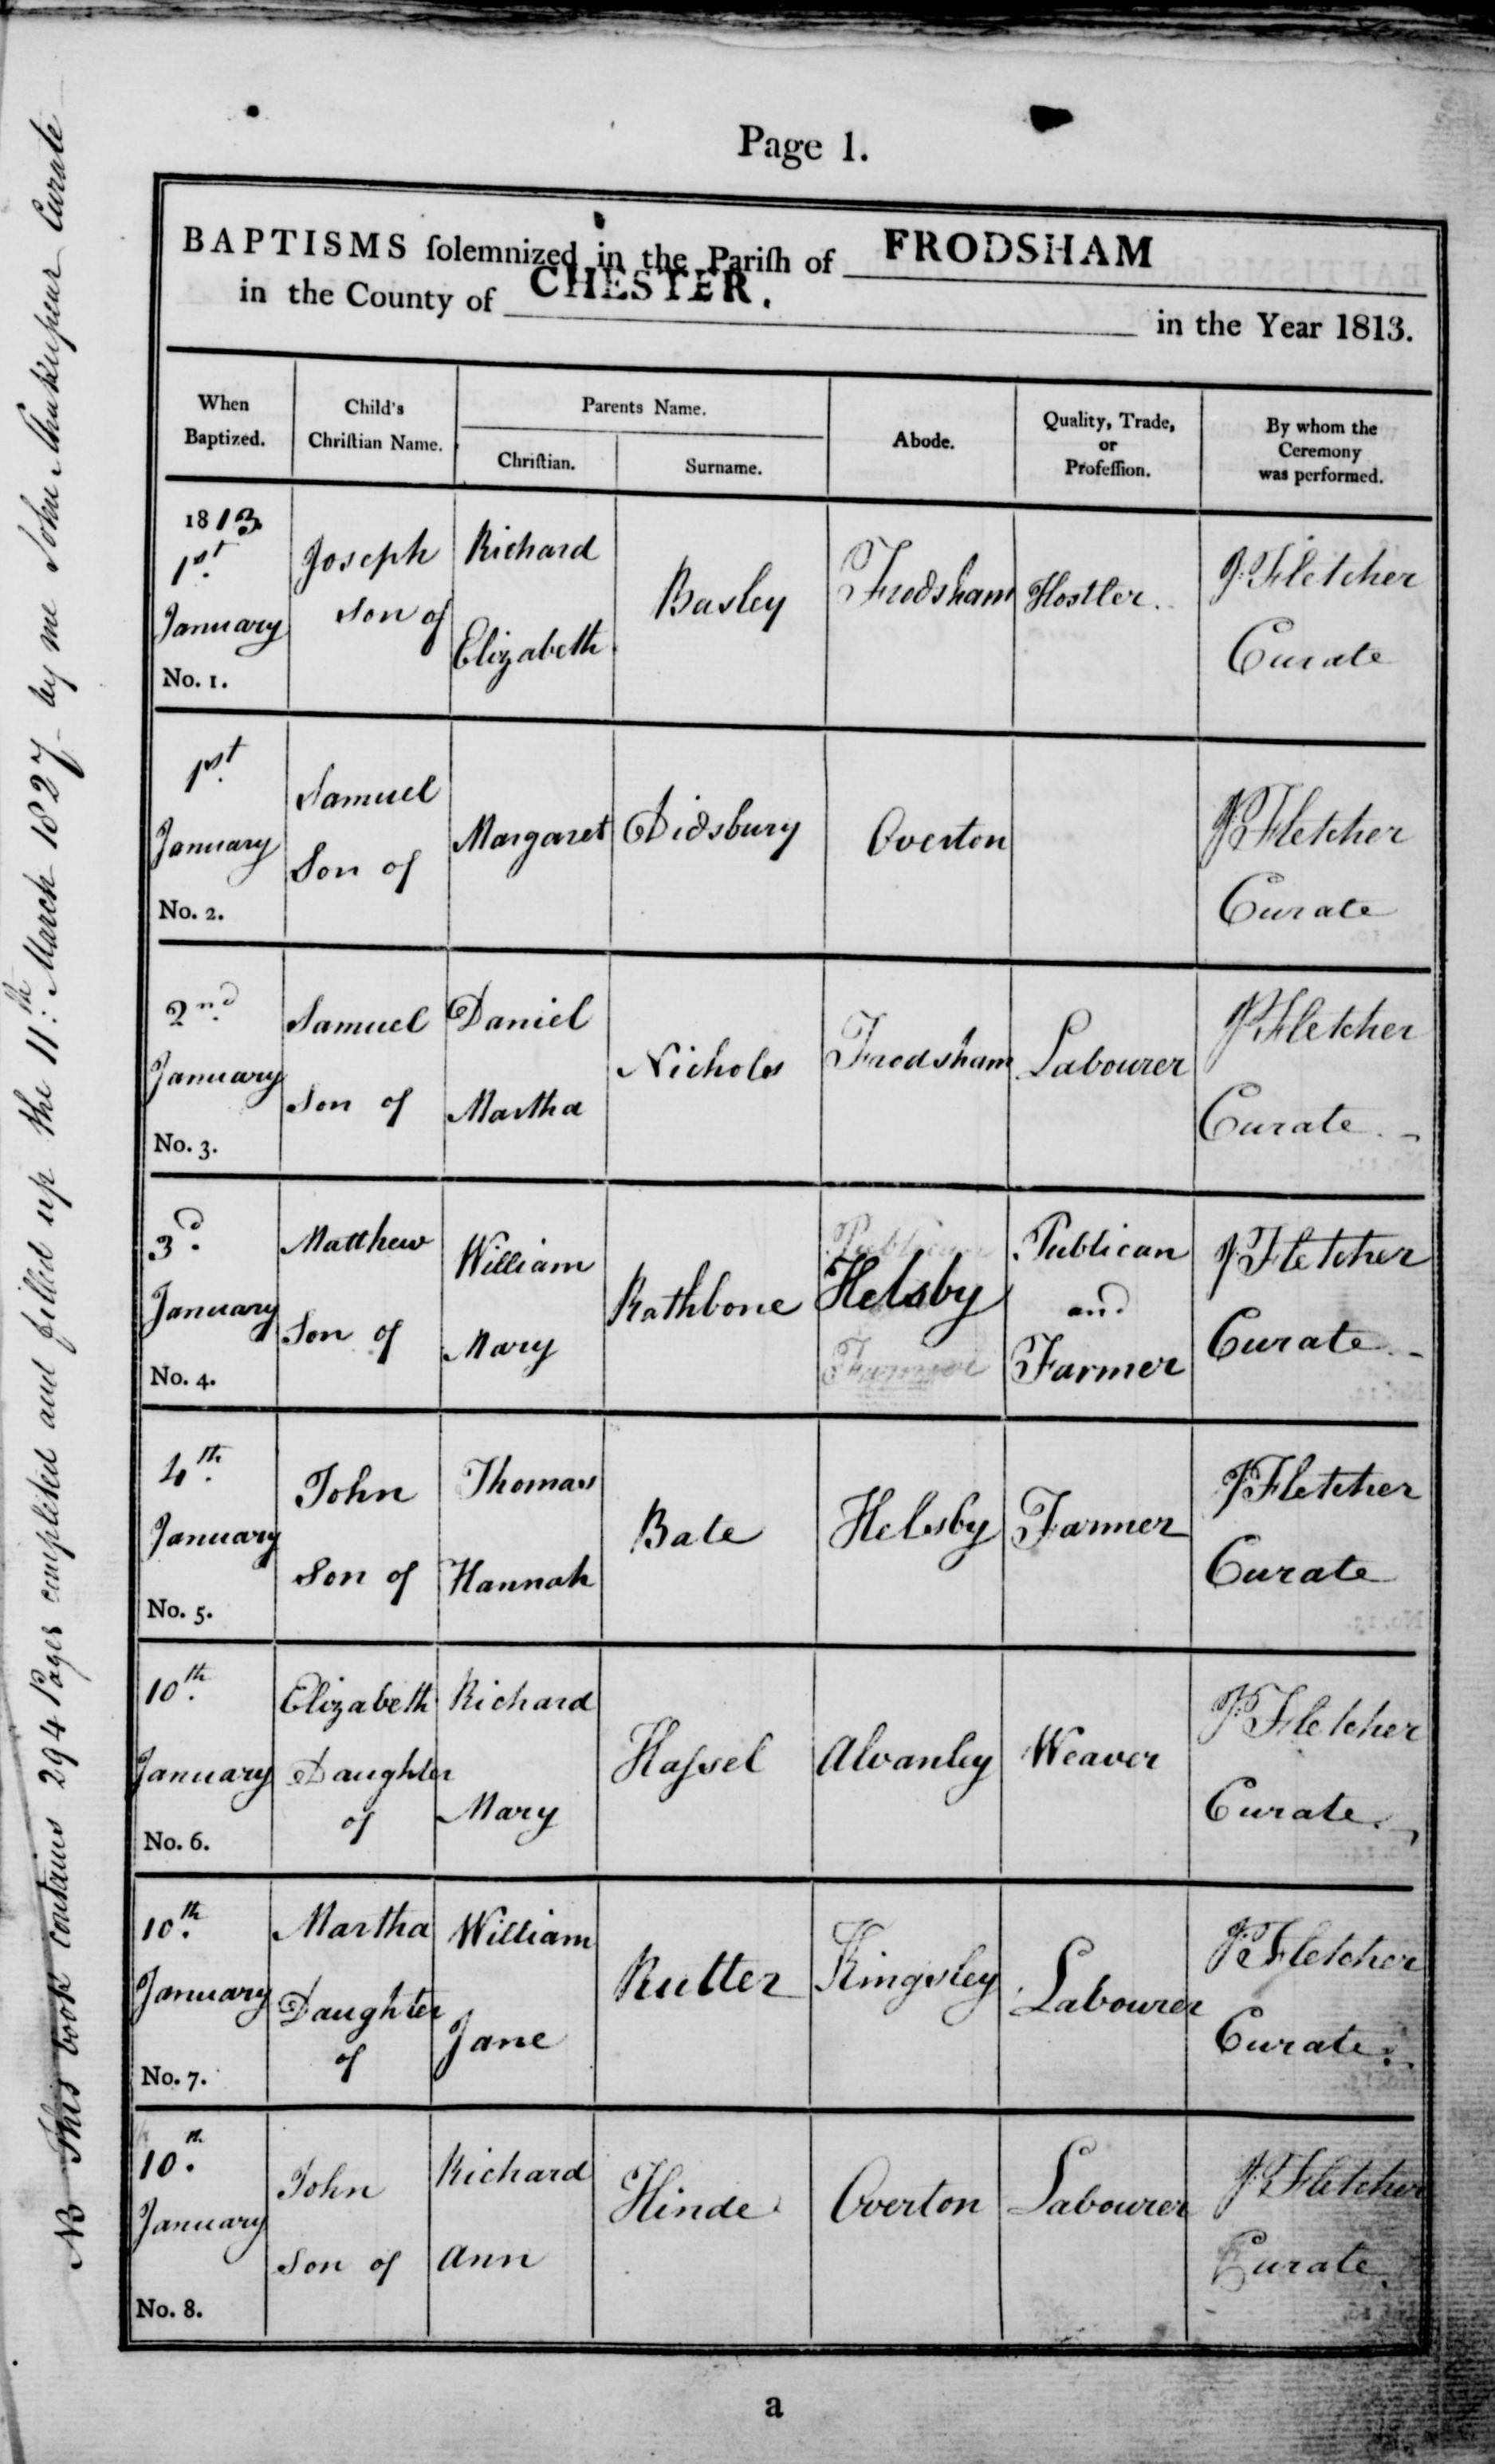 Page 1.
BAPTISMS ſolemnized in the Pariſh of FRODSHAM
in the County of CHESTER. in the Year 1813.
When Baptized. Child's Chriſtian Name. Parents Name. Chriſtian. Surname. Abode. Quality, Trade, or Profeſſion. By whom the Ceremony was performed.
1813.
1st. January No. 1. Joseph son of Richard Elizabeth Basley Frodsham Hostler. J: Fletcher Curate
1st. January No. 2. Samuel Son of Margaret Didsbury Overton J: Fletcher Curate
2nd. January No. 3. Samuel Son of Daniel Martha Nicholas Frodsham Labourer J: Fletcher Curate
3d. January No. 4. Matthew Son of William Mary Rathbone Publican Helsby Farmer Publican and Farmer J: Fletcher Curate
4th. January No. 5. John Son of Thomas Hannah Bate Helsby Farmer J: Fletcher Curate
10th. January No. 6. Elizabeth Daughter of Richard Mary Haſsel Alvanley Weaver J: Fletcher Curate
10th. January No. 7. Martha Daughter of William Jane Rutter Kingsley Labourer J: Fletcher Curate
10th. January No. 8. John Son of Richard Ann Hinde Overton Labourer J: Fletcher Curate
a
NB This book contains 294 Pages completed and filled up the 11th: March 1827 by me John Shakespear Curate